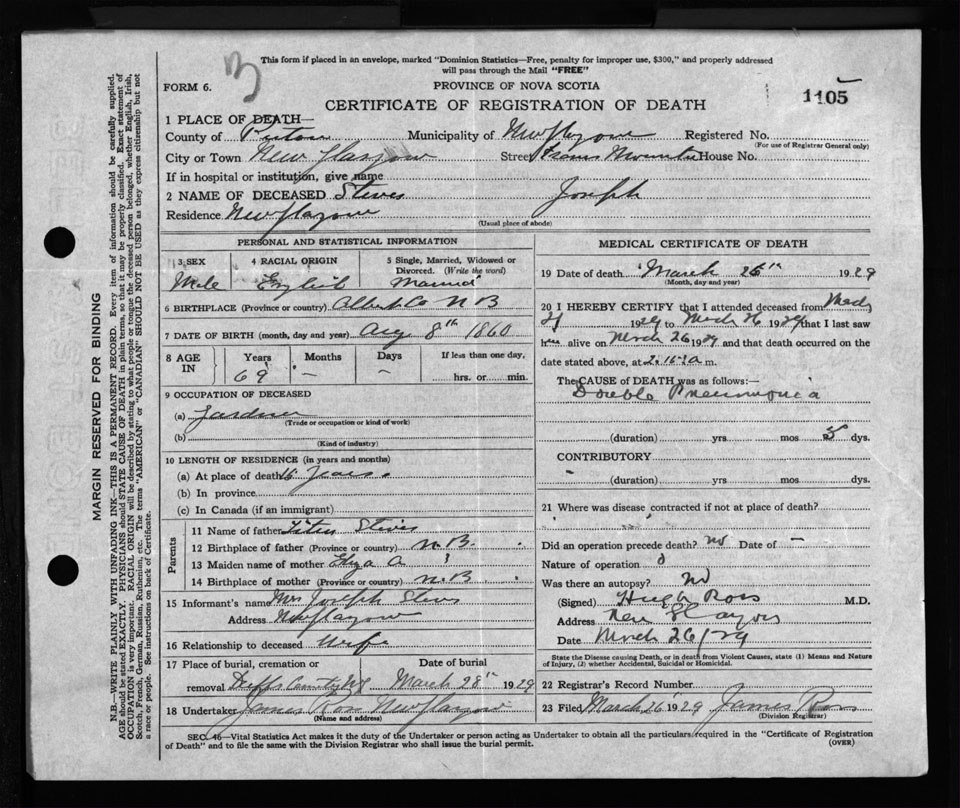 This form if placed in an envelope, marked "Dominion Statistics—Free, penalty for improper use, $300," and properly addressed
will pass through the Mail "FREE"
FORM 6.
3
PROVINCE OF NOVA SCOTIA
1105
CERTIFICATE OF REGISTRATION OF DEATH
1 PLACE OF DEATH—
County of Pictou Municipality of New Glasgow Registered No.
(For use of Registrar General only)
City or Town New Glasgow Street House No.
If in hospital or institution, give name
2 NAME OF DECEASED Steves Joseph
Residence New Glasgow
(Usual place of abode)
PERSONAL AND STATISTICAL INFORMATION
3 SEX 4 RACIAL ORIGIN 5 Single, Married, Widowed or
Divorced. (Write the word)
Male English Married
6 BIRTHPLACE (Province or country) Albert Co N B
7 DATE OF BIRTH (month, day and year) Aug 8th 1860
8 AGE IN Years Months Days If less than one day,
69 — — hrs. or min.
9 OCCUPATION OF DECEASED
(a) Gardner
(Trade or occupation or kind of work)
(b)
(Kind of industry)
10 LENGTH OF RESIDENCE (in years and months)
(a) At place of death 16 years
(b) In province
(c) In Canada (if an immigrant)
Parents
11 Name of father Titus Steves
12 Birthplace of father (Province or country) N.B.
13 Maiden name of mother Eliza A. ?
14 Birthplace of mother (Province or country) N.B
15 Informant's name Mrs Joseph Steves
Address New Glasgow
16 Relationship to deceased Wife
17 Place of burial, cremation or Date of burial
removal March 28th 1929
18 Undertaker James Ross New Glasgow
(Name and address)
MEDICAL CERTIFICATE OF DEATH
19 Date of death March 26th 1929
(Month, day and year)
20 I HEREBY CERTIFY that I attended deceased from March
21 1929 to March 26 1929 that I last saw
him alive on March 26 1929 and that death occurred on the
date stated above, at m.
The CAUSE OF DEATH was as follows:—
Double Pneumonia
(duration) yrs mos 5 dys.
CONTRIBUTORY
(duration) yrs. mos. dys.
21 Where was disease contracted if not at place of death?
Did an operation precede death? No Date of —
Nature of operation 0
Was there an autopsy? No
(Signed) Hugh Ross M.D.
Address New Glasgow
Date March 26/29
State the Disease causing Death, or in death from Violent Causes, state (1) Means and Nature
of Injury, (2) whether Accidental, Suicidal or Homicidal.
22 Registrar's Record Number
23 Filed March 26 1929 James Ross
(Division Registrar)
SEC. 46—Vital Statistics Act makes it the duty of the Undertaker or person acting as Undertaker to obtain all the particulars required in the "Certificate of Registration
of Death" and to file the same with the Division Registrar who shall issue the burial permit.
(OVER)
MARGIN RESERVED FOR BINDING
N.B.—WRITE PLAINLY WITH UNFADING INK—THIS IS A PERMANENT RECORD. Every item of information should be carefully supplied.
AGE should be stated EXACTLY. PHYSICIANS should STATE CAUSE OF DEATH in plain terms, so that it may be properly classified. Exact statement of
OCCUPATION is very important. RACIAL ORIGIN will be described by stating to what people or tongue the deceased person belonged, whether English, Irish,
Scotch, French, German, Russian, Ruthenian, etc. The terms "AMERICAN" or "CANADIAN" SHOULD NOT BE USED as they express citizenship but not
a race or people. See instructions on back of Certificate.